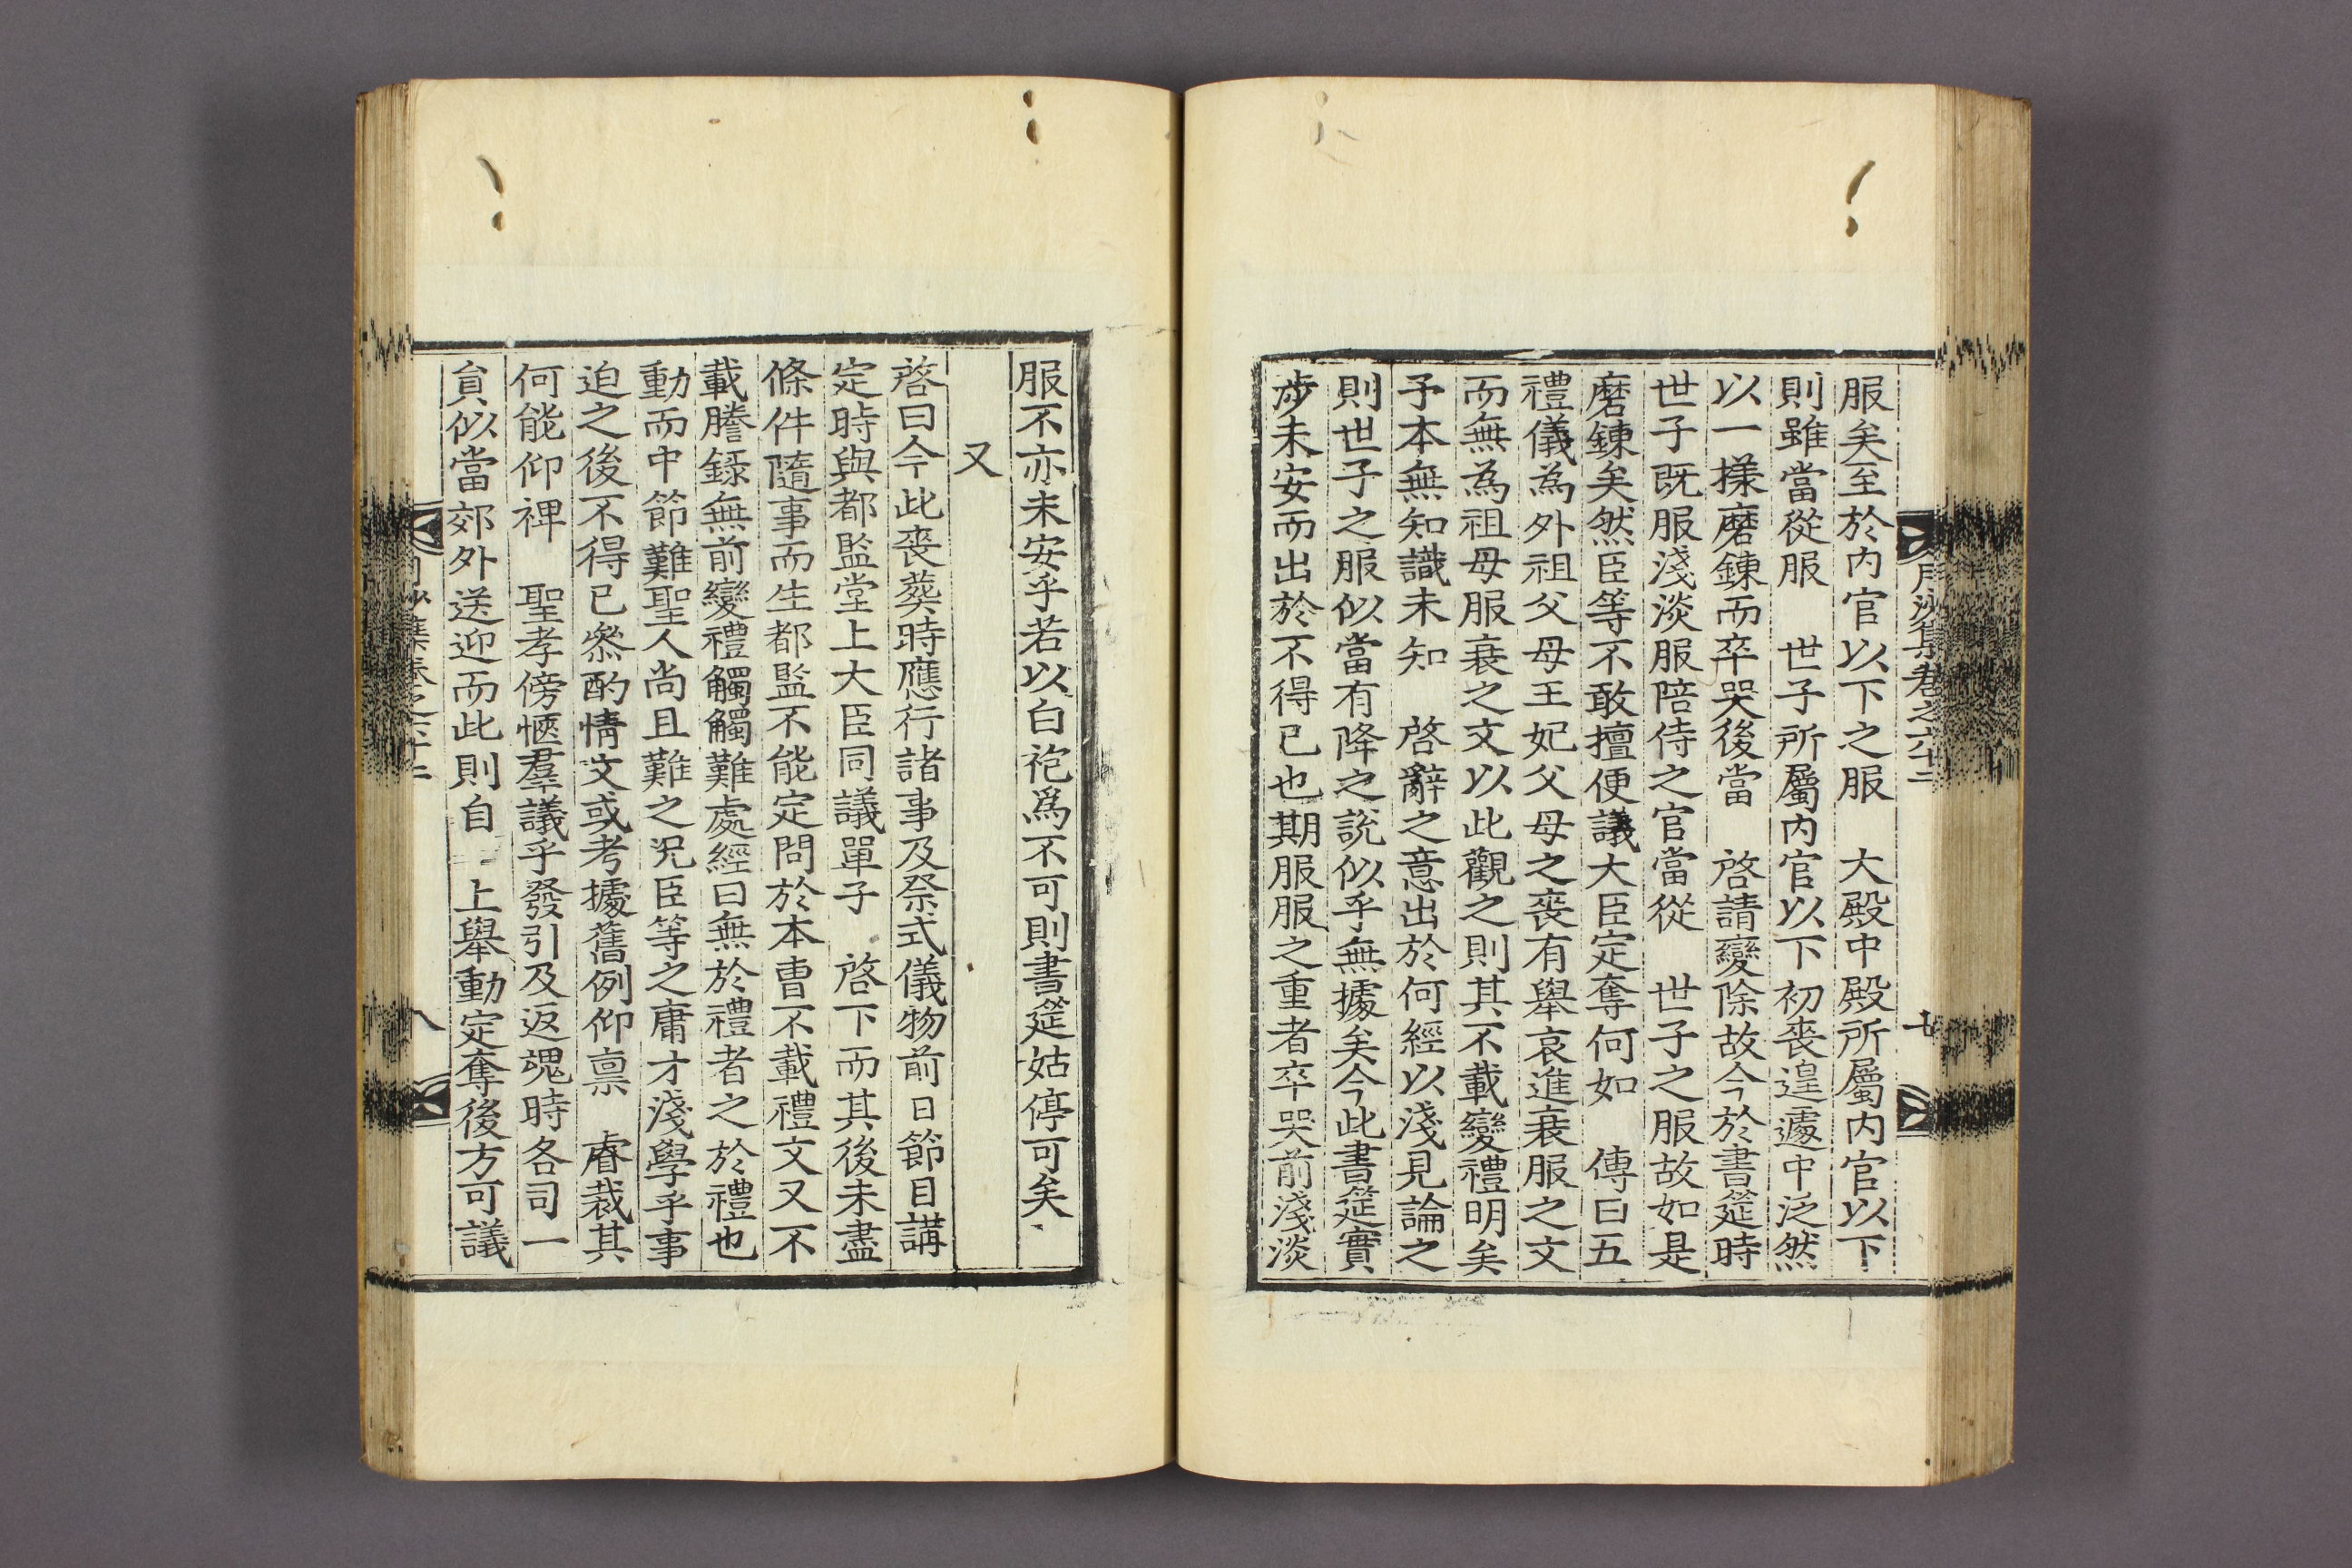 月沙集卷之六十二
七
服矣至於内官以下之服　大殿中殿所屬内官以下
則雖當從服　世子所屬内官以下初喪遑遽中泛然
以一㨾磨鍊而卒哭後當　啓請變除故今於書筵時
世子既服淺淡服陪侍之官當從　世子之服故如是
磨鍊矣然臣等不敢擅便議大臣定奪何如　傳曰五
禮儀為外祖父母王妃父母之喪有舉哀進衰服之文
而無為祖母服衰之文以此觀之則其不載變禮明矣
予本無知識未知　啓辭之意出於何經以淺見論之
則世子之服似當有降之說似乎無據矣今此書筵實
涉未安而出於不得已也期服服之重者卒哭前淺淡
服不亦未安乎若以白袍爲不可則書筵姑停可矣
又
啓曰今此喪葬時應行諸事及祭式儀物前日節目講
定時與都監堂上大臣同議單子　啓下而其後未盡
條件隨事而生都監不能定問於本曺不載禮文又不
載謄錄無前變禮觸觸難處經曰無於禮者之於禮也
動而中節難聖人尚且難之况臣等之庸才淺學乎事
迫之後不得已叅酌情文或考據舊例仰禀　睿裁其
何能仰裨　聖孝傍愜羣議乎發引及返魂時各司一
員似當郊外送迎而此則自　上舉動定奪後方可議
月沙集卷之六十二
八